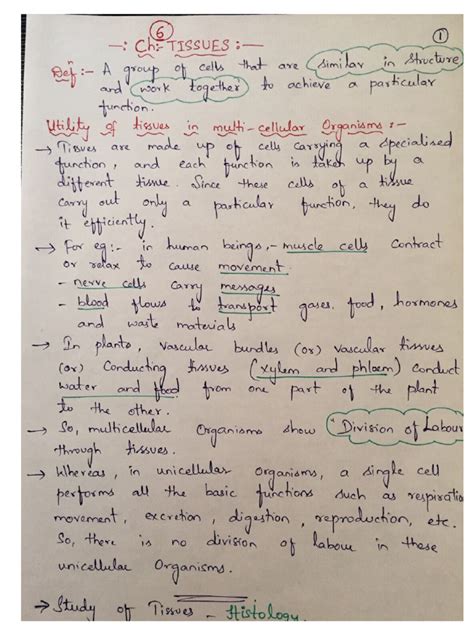 6
1
—: Ch:- TISSUES :—
Defn :- A group of cells that are similar in structure
and work together to achieve a particular
function.
Utility of tissues in multi-cellular Organisms :-
→ Tissues are made up of cells carrying a specialised
function, and each function is taken up by a
different tissue. Since these cells of a tissue
carry out only a particular function, they do
it efficiently.
→ For eg:- in human beings,- muscle cells contract
or relax to cause movement.
- nerve cells carry messages
- blood flows to transport gases, food, hormones
and waste materials
→ In plants, vascular bundles (or) vascular tissues
(or) Conducting tissues (xylem and phloem) conduct
water and food from one part of the plant
to the other.
→ So, multicellular Organisms show "Division of Labour
through tissues.
→ Whereas, in unicellular organisms, a single cell
performs all the basic functions such as respiratio
movement, excretion, digestion, reproduction, etc.
So, there is no division of labour in these
unicellular Organisms.
→ Study of Tissues - Histology.